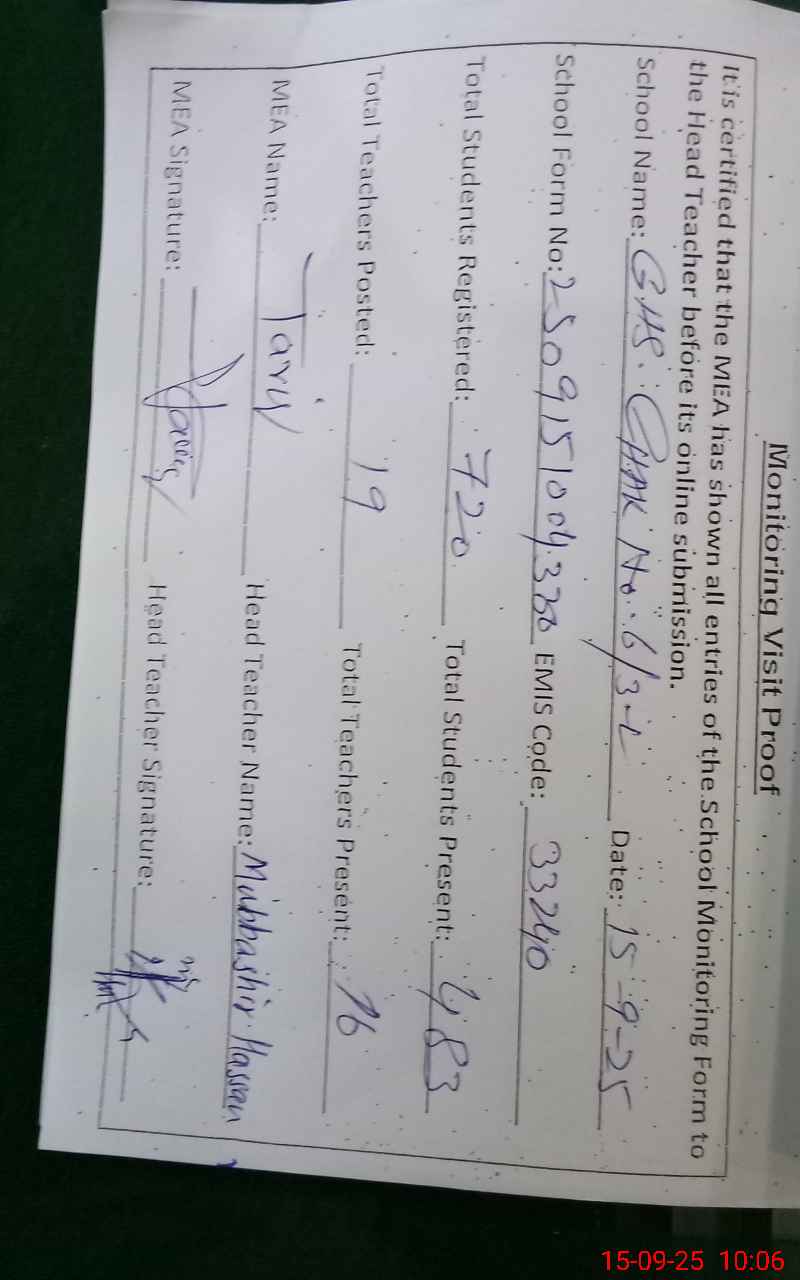 Monitoring Visit Proof
It is certified that the MEA has shown all entries of the School Monitoring Form to
the Head Teacher before its online submission.
School Name: GHS. CHAK No. 6/3-L Date: 15-9-25
School Form No: EMIS Code: 33240
Total Students Registered: 720 Total Students Present: 483
Total Teachers Posted: 19 Total Teachers Present: 16
MEA Name: Tariq Head Teacher Name: Mubbashir Hassan
MEA Signature: Tariq Head Teacher Signature:
15-09-25 10:06